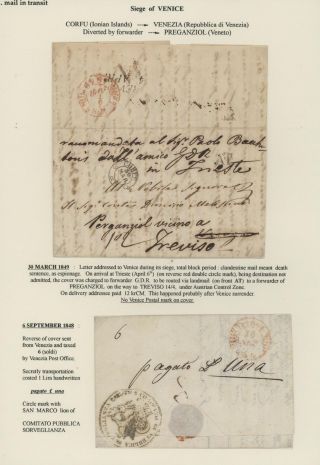 . mail in transit
Siege of VENICE
CORFU (Ionian Islands) → VENEZIA (Repubblica di Venezia)
Diverted by forwarder → PREGANZIOL (Veneto)
raccomandata al Sig. Paolo
dall'amico GDR
in Trieste
Perganziol vicino a
Treviso
30 MARCH 1849 : Letter addressed to Venice during its siege, total block period : clandestine mail meant death
sentence, as espionage. On arrival at Trieste (April 6th) (on reverse red double circle mark), being destination not
admitted, the cover was charged to forwarder G.D.R. to be routed via landmail (on front AT) to a forwarder of
PREGANZIOL on the way to TREVISO 14/4, under Austrian Control Zone.
On delivery addressee paid 12 krCM. This happened probably after Venice surrender.
No Venice Postal mark on cover
6 SEPTEMBER 1848 :
Reverse of cover sent
from Venezia and taxed
6 (soldi)
by Venezia Post Office
Secretly transportation
costed 1 Lira handwritten
pagato £ una
Circle mark with
SAN MARCO lion of
COMITATO PUBBLICA
SORVEGLIANZA
6
pagato £ Una